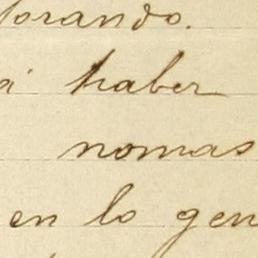 lorando.
á haber
nomas
en lo gen